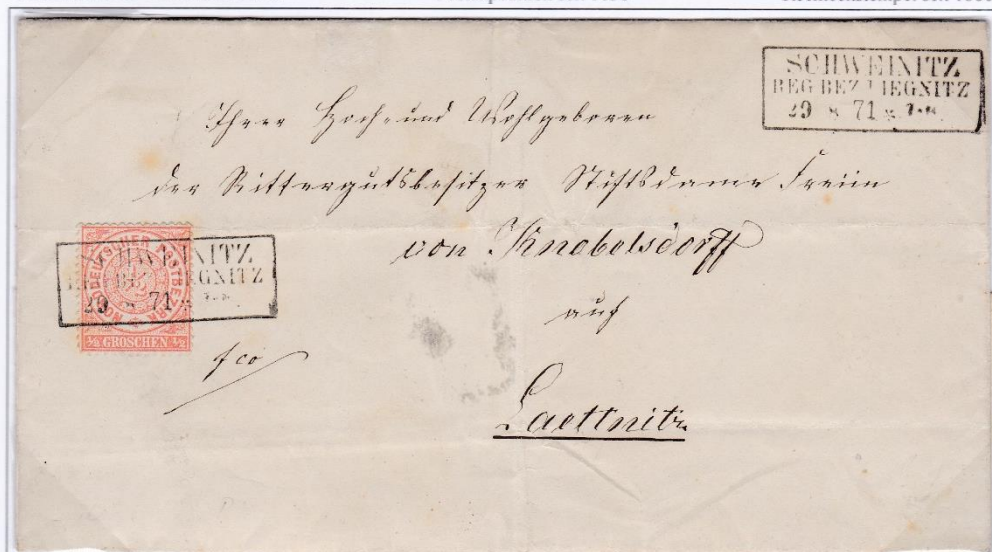 SCHWEINITZ
REG BEZ LIEGNITZ
29 8 71
Ihrer Hoch- und Wohlgeboren
der Rittergutsbesitzer Stiftsdame Freiin
von Knobelsdorff
auf
Laettnitz
SCHWEINITZ
REG BEZ LIEGNITZ
29 8 71
NORDDEUTSCHER POSTBEZIRK
1/2 GROSCHEN 1/2
fco